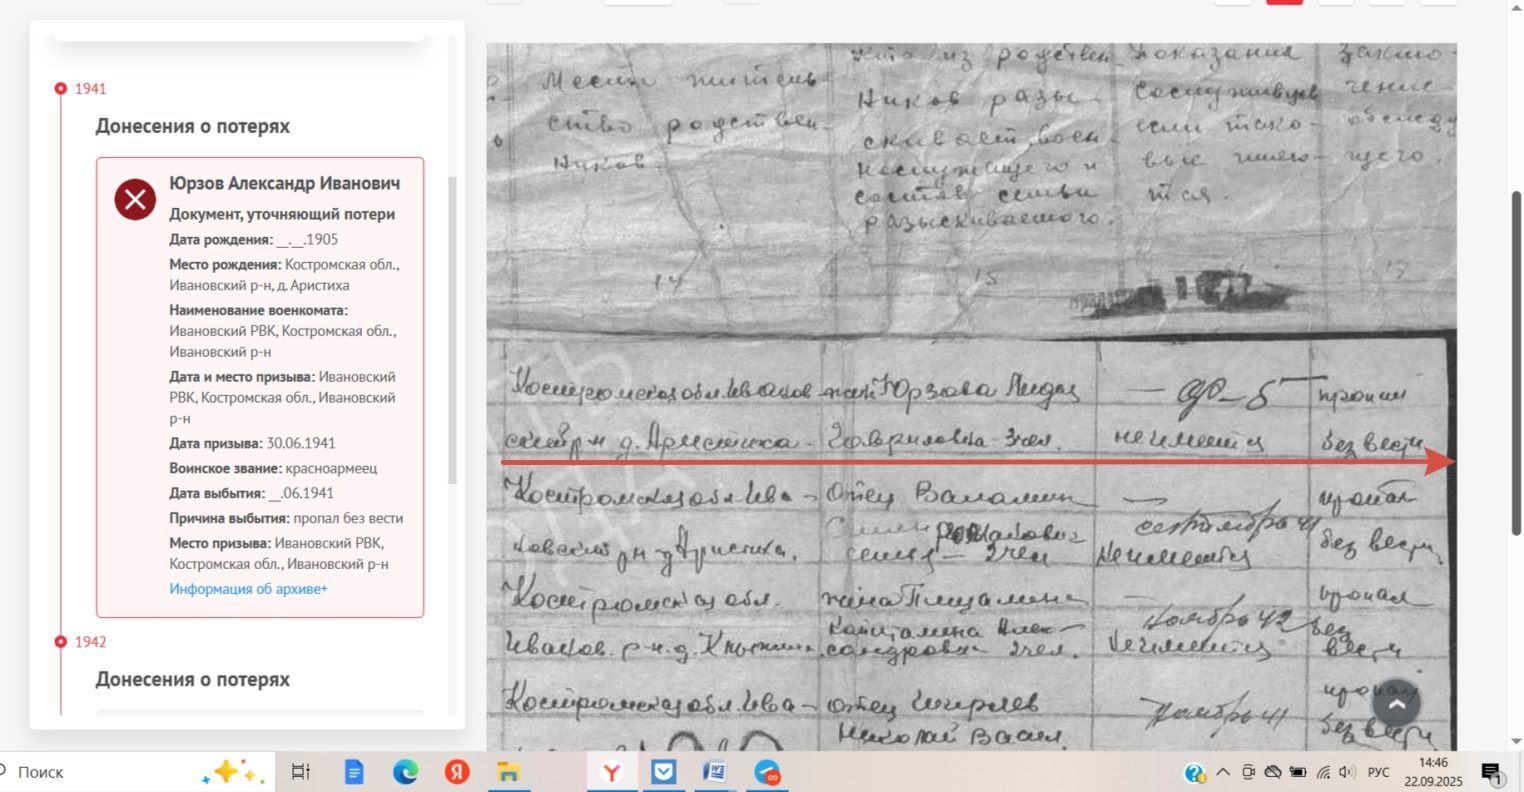 1941
Донесения о потерях
Юрзов Александр Иванович
Документ, уточняющий потери
Дата рождения: __.__.1905
Место рождения: Костромская обл.,
Ивановский р-н, д. Аристиха
Наименование военкомата:
Ивановский РВК, Костромская обл.,
Ивановский р-н
Дата и место призыва: Ивановский
РВК, Костромская обл., Ивановский
р-н
Дата призыва: 30.06.1941
Воинское звание: красноармеец
Дата выбытия: __.06.1941
Причина выбытия: пропал без вести
Место призыва: Ивановский РВК,
Костромская обл., Ивановский р-н
Информация об архиве+
1942
Донесения о потерях
Место житель-
ство родствен-
ников.
14
Кто из родствен-
ников разы-
скивает воен-
нослужащего и
состав семьи
разыскиваемого.
15
показания
сослуживцев
если тако-
вые имею-
тся.
заклю-
чение
обследу
ющего.
17
Костромская обл. Иванов-
ский р-н д. Аристиха-
жена Юрзова Лидия
Гавриловна 3 чел.
не имеется
пропал
без вести
Костромская обл. Ива-
новский р-н д Аристиха.
отец Валамин
семья - 2 чел
сентябрь 41
Не имеется
пропал
без вести
Костромская обл.
Иванов. р-н. д.
жена
Капиталина Алек-
сандровна 2 чел.
ноябрь 42
Не имеется
пропал
без
вести
Костромская обл. Ива-
отец Ширяев
Николай Васил.
ноябрь 41
пропал
без вести
Поиск
РУС
14:46
22.09.2025
1